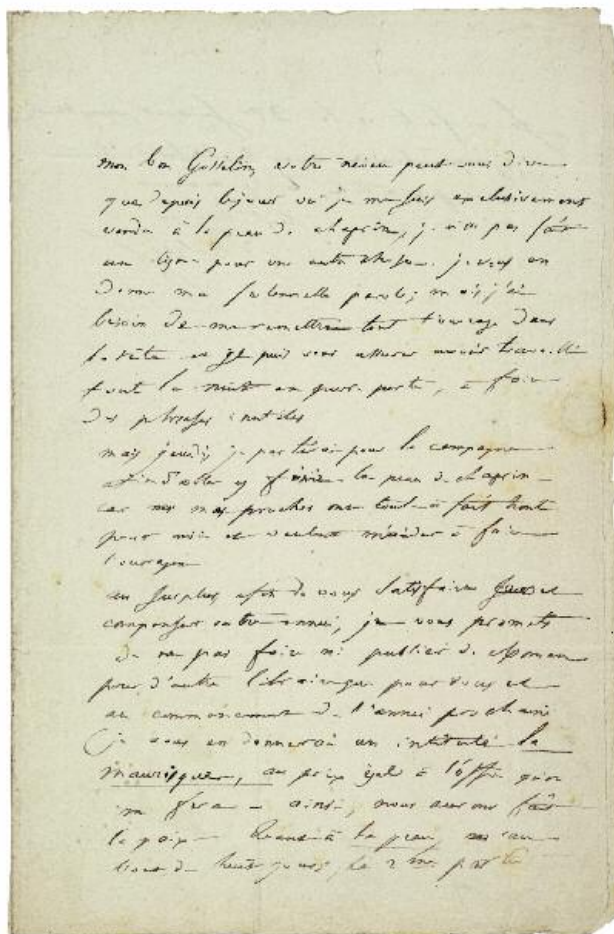 mon bon Gosselin, votre neveu peut vous dire
que depuis le jour où je me suis exclusivement
vendu à la peau de chagrin, je n'ai pas fait
une ligne pour une autre chose. je vous en
donne ma solennelle parole; mais j'ai
besoin de me remettre tout l'ouvrage dans
la tête et je puis vous assurer avoir travaillé
toute la nuit en pure perte, à faire
des phrases inutiles
mais jeudi je partirai pour la campagne
afin d'aller y finir la peau de chagrin
car vos reproches me font tout à fait honte
pour moi et veulent m'aider à faire
l'ouvrage
au surplus, afin de vous satisfaire et
compenser votre ennui, je vous promets
de ne pas faire ni publier de roman
pour d'autre libraire que pour vous et
au commencement de l'année prochaine
je vous en donnerai un intitulé la
mauresque, au prix égal à l'offre qu'on
m'en fera - ainsi, nous aurons fait
la paix - Quant à la peau,
bout de huit jours, la 2me partie